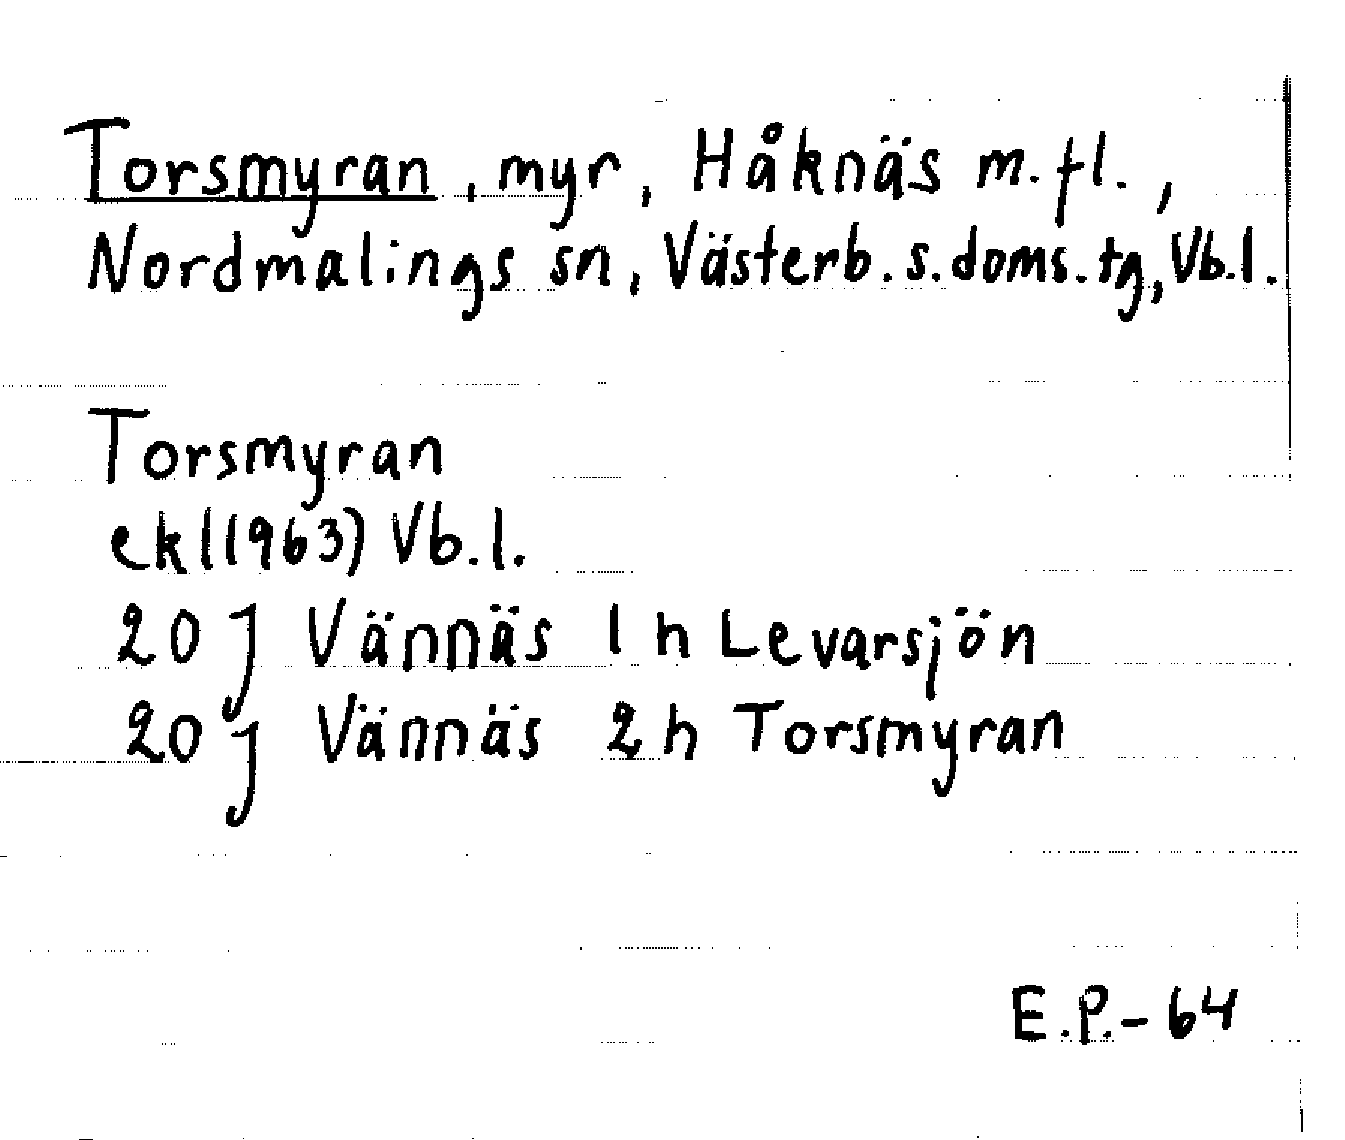 Torsmyran, myr, Håknäs m.fl.,
Nordmalings sn, Västerb.s.doms.tg, Vb.l.
Torsmyran
ekl(1963) Vb.l.
20 J Vännäs 1 h Levarsjön
20 J Vännäs 2 h Torsmyran
E.P.-64